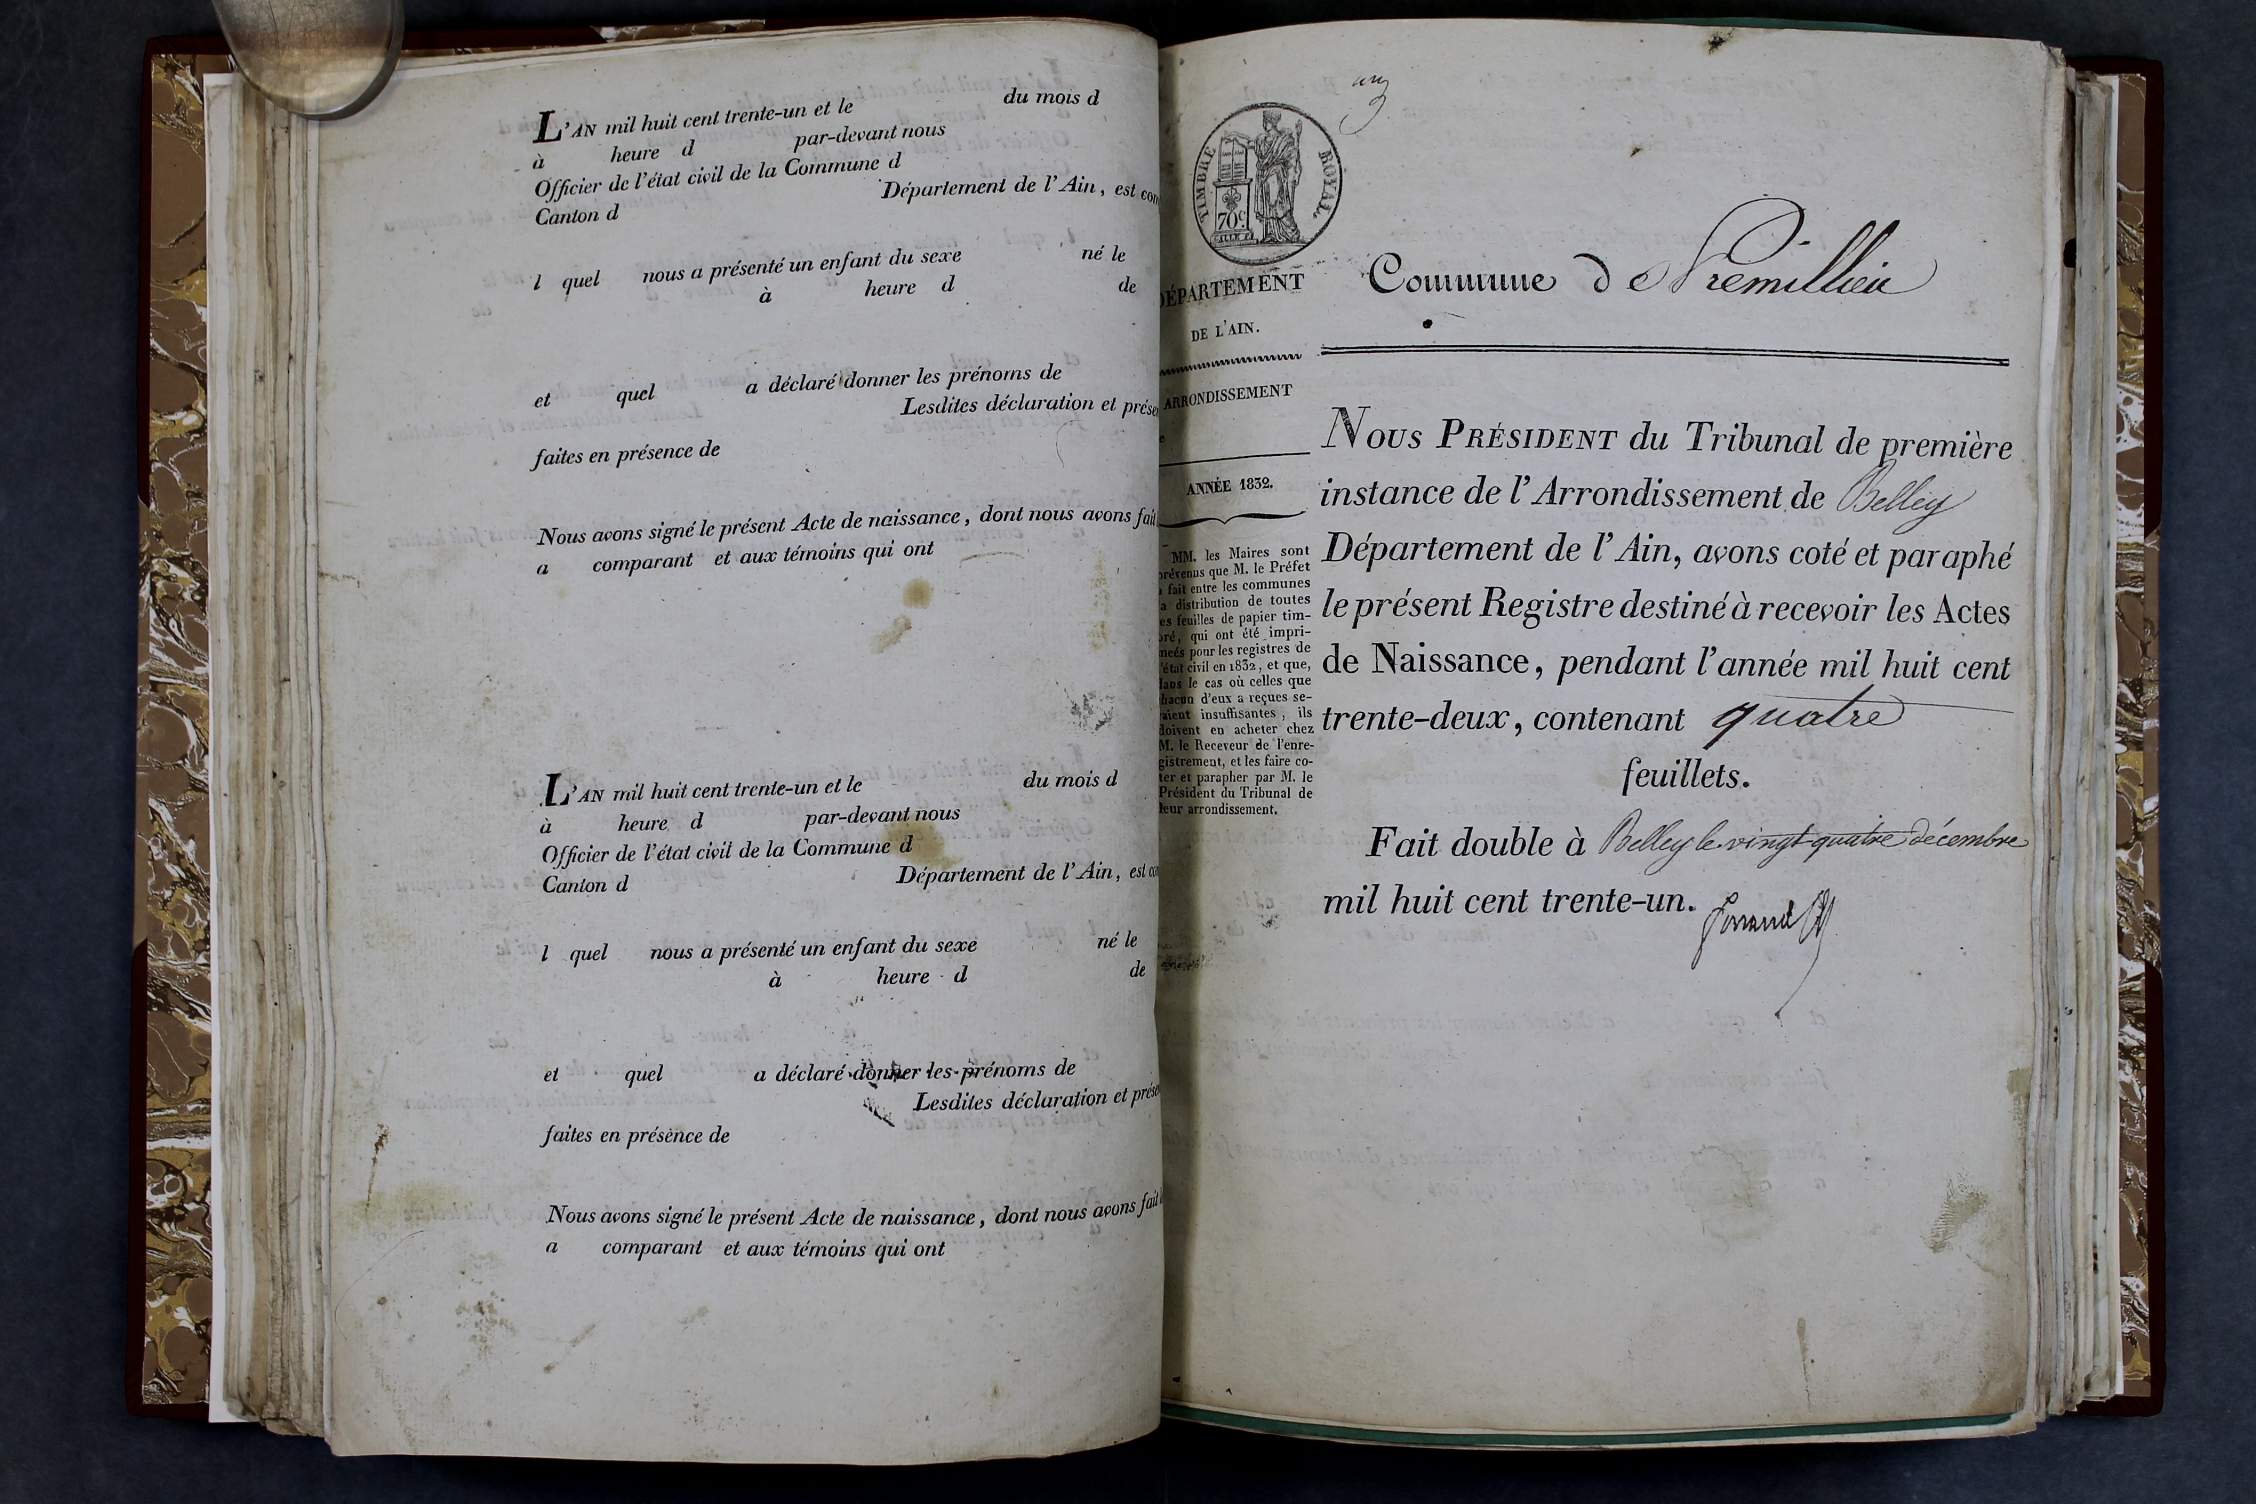 L'AN mil huit cent trente-un et le du mois d
à heure d par-devant nous
Officier de l'état civil de la Commune d
Canton d Département de l'Ain, est com
l quel nous a présenté un enfant du sexe né le
à heure d de
et quel a déclaré donner les prénoms de
Lesdites déclaration et prése
faites en présence de
Nous avons signé le présent Acte de naissance, dont nous avons fait
a comparant et aux témoins qui ont
L'AN mil huit cent trente-un et le du mois d
à heure d par-devant nous
Officier de l'état civil de la Commune d
Canton d Département de l'Ain, est com
l quel nous a présenté un enfant du sexe né le
à heure d de
et quel a déclaré donner les prénoms de
Lesdites déclaration et prése
faites en présence de
Nous avons signé le présent Acte de naissance, dont nous avons fait
a comparant et aux témoins qui ont
TIMBRE ROYAL.
70c.
DÉPARTEMENT
DE L'AIN.
ARRONDISSEMENT
ANNÉE 1832.
MM. les Maires sont
prévenus que M. le Préfet
a fait entre les communes
la distribution de toutes
es feuilles de papier tim-
bré, qui ont été impri-
meés pour les registres de
l'état civil en 1832, et que,
dans le cas où celles que
chacun d'eux a reçues se-
raient insuffisantes, ils
doivent en acheter chez
M. le Receveur de l'enre-
gistrement, et les faire co-
ter et parapher par M. le
Président du Tribunal de
leur arrondissement.
Commune de Premillieu
NOUS PRÉSIDENT du Tribunal de première
instance de l'Arrondissement de Belley
Département de l'Ain, avons coté et paraphé
le présent Registre destiné à recevoir les Actes
de Naissance, pendant l'année mil huit cent
trente-deux, contenant quatre
feuillets.
Fait double à Belley le vingt-quatre décembre
mil huit cent trente-un.